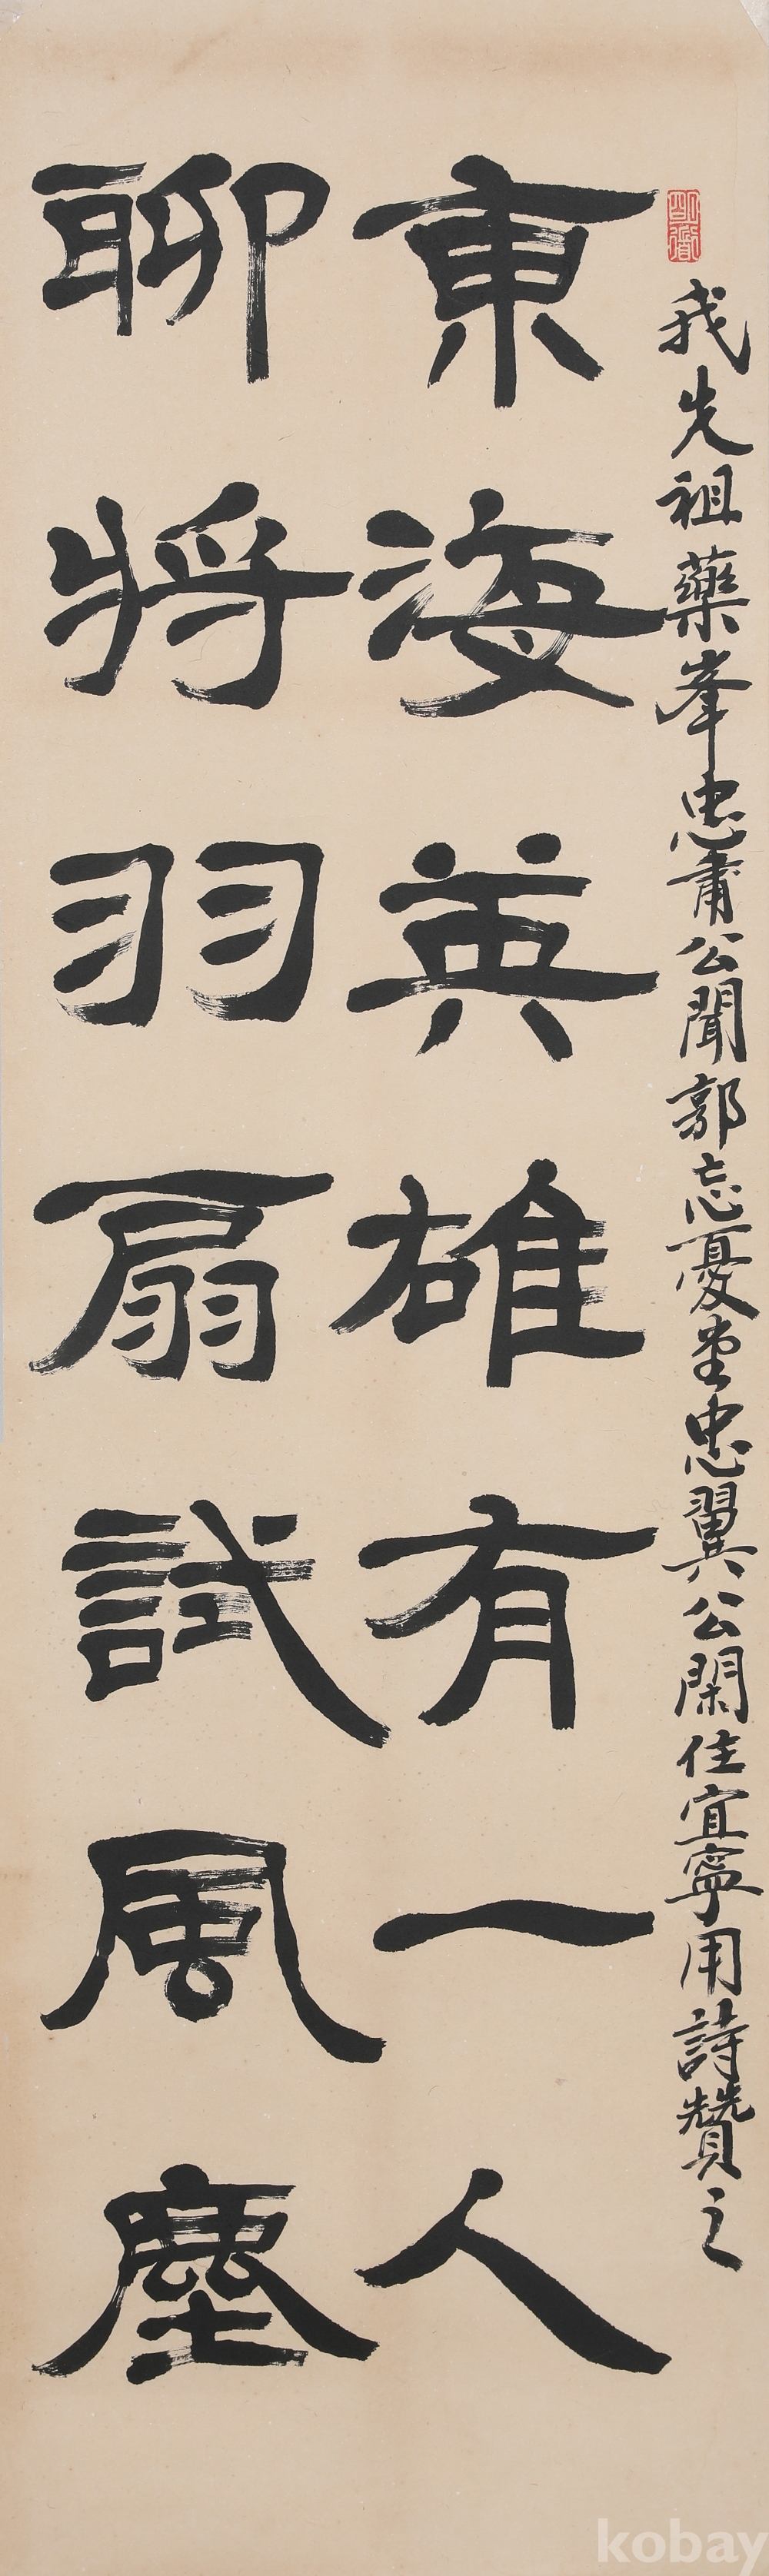 我先祖藥峯忠肅公聞郭忘憂堂忠翼公閑住宜寧用詩贊之
東海英雄有一人
聊將羽扇試風塵
kobay